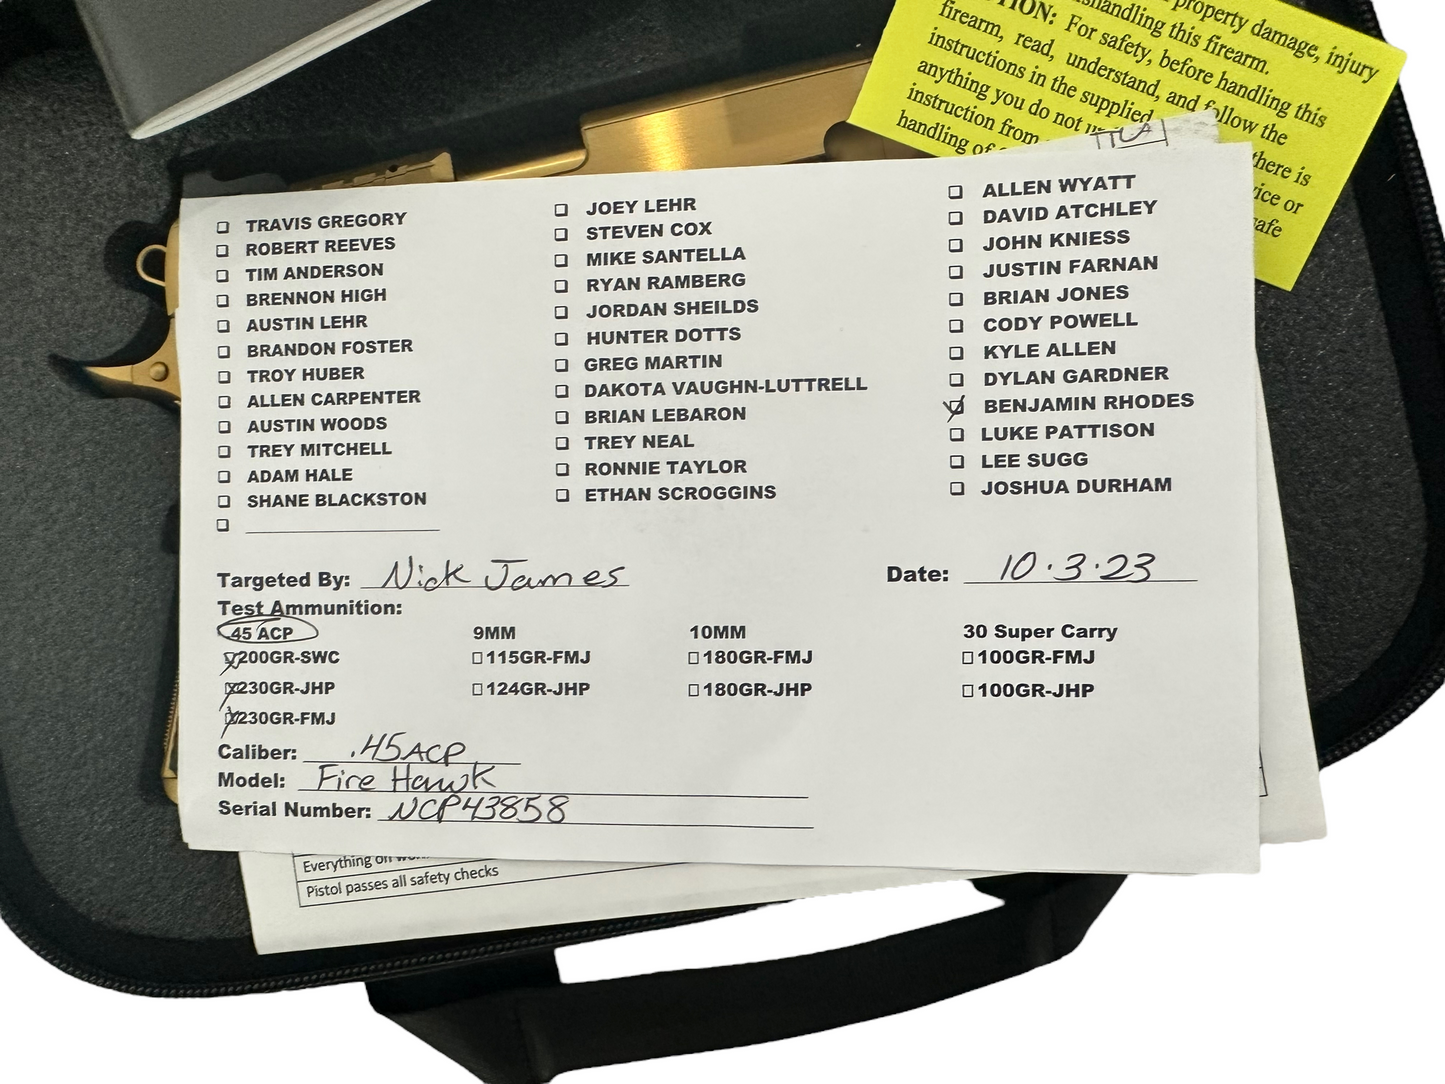 property damage, injury
shandling this firearm.
TION: For safety, before handling this
firearm, read, understand, and follow the
instructions in the supplied
anything you do not
there is
instruction from
vice or
handling of
safe
TRAVIS GREGORY
ROBERT REEVES
TIM ANDERSON
BRENNON HIGH
AUSTIN LEHR
BRANDON FOSTER
TROY HUBER
ALLEN CARPENTER
AUSTIN WOODS
TREY MITCHELL
ADAM HALE
SHANE BLACKSTON
JOEY LEHR
STEVEN COX
MIKE SANTELLA
RYAN RAMBERG
JORDAN SHEILDS
HUNTER DOTTS
GREG MARTIN
DAKOTA VAUGHN-LUTTRELL
BRIAN LEBARON
TREY NEAL
RONNIE TAYLOR
ETHAN SCROGGINS
ALLEN WYATT
DAVID ATCHLEY
JOHN KNIESS
JUSTIN FARNAN
BRIAN JONES
CODY POWELL
KYLE ALLEN
DYLAN GARDNER
BENJAMIN RHODES
LUKE PATTISON
LEE SUGG
JOSHUA DURHAM
Targeted By: Nick James
Date: 10.3.23
Test Ammunition:
45 ACP 9MM 10MM 30 Super Carry
200GR-SWC 115GR-FMJ 180GR-FMJ 100GR-FMJ
230GR-JHP 124GR-JHP 180GR-JHP 100GR-JHP
230GR-FMJ
Caliber: .45ACP
Model: Fire Hawk
Serial Number: NCP43858
Everything on
Pistol passes all safety checks